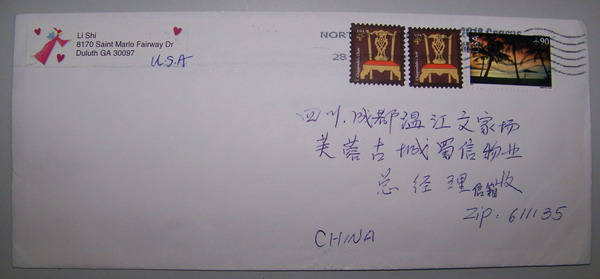 Li Shi
8170 Saint Marlo Fairway Dr
Duluth GA 30097
U.S.A
NORT
28
2010 Census
+90
四川.成都温江文家场
芙蓉古城蜀信物业
总经理信箱收
Zip: 611135
CHINA